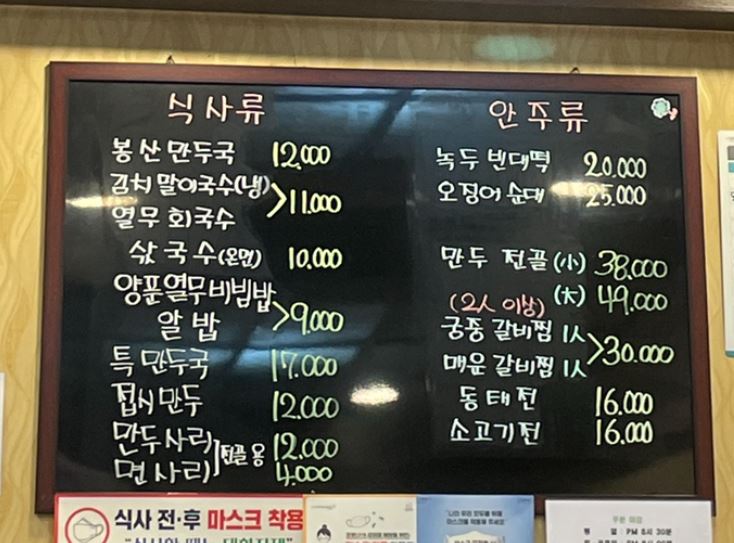 식사류
봉산만두국 12,000
김치말이국수(냉)
>11.000
열무회국수
삿국수(온면) 10.000
양푼열무비빔밥
>9.000
알밥
특만두국 17.000
접시만두 12.000
만두사리 12.000
]전골용
면사리 4.000
안주류
녹두빈대떡 20.000
오징어순대 25.000
만두 전골 (小) 38.000
(大) 49.000
(2人 이상)
궁중갈비찜 1人
>30.000
매운갈비찜 1人
동태전 16.000
소고기전 16.000
식사 전·후 마스크 착용
주문 마감
평 일 : PM 8시 30분